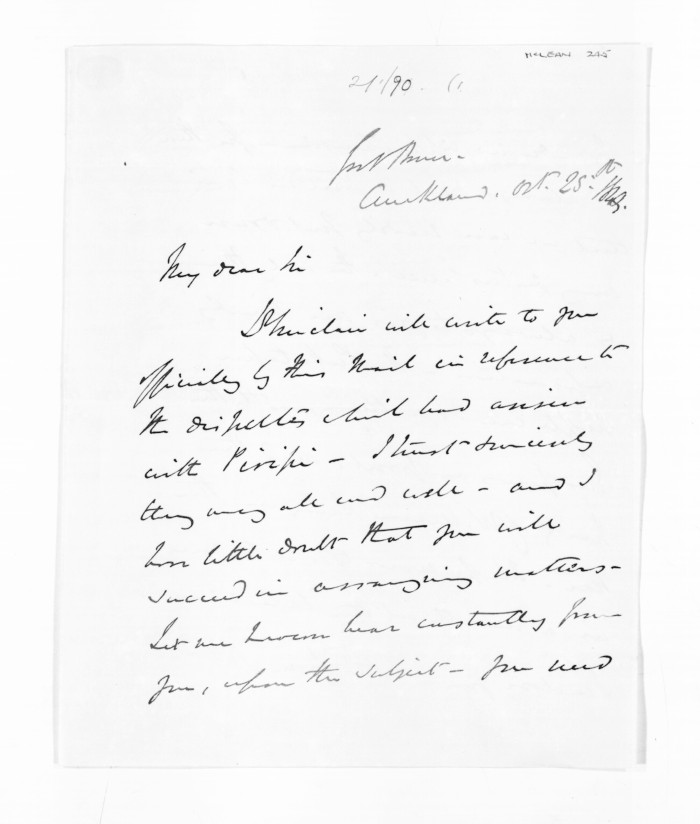 McLEAN 245
21/90.
Govt House -
Auckland. Oct. 25th
My dear Sir
Dr Sinclair will write to you
officially by this Mail in reference to
the disputes which had arisen
with Piripi - I trust sincerely
they may all end well - and I
have little doubt that you will
succeed in arranging matters -
Let me however hear constantly from
you, upon this subject - you need